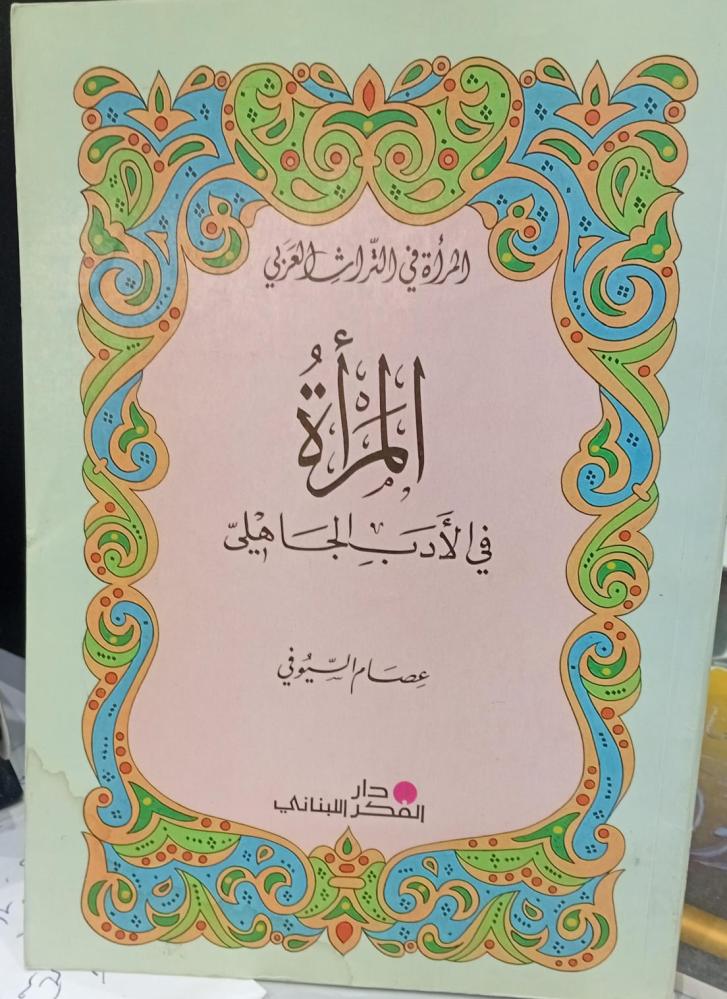 المرأة في التراث العربي
المرأةُ
في الأدَبِ الجَاهِليّ
عصام السيُوفي
دار
الفكر اللبناني